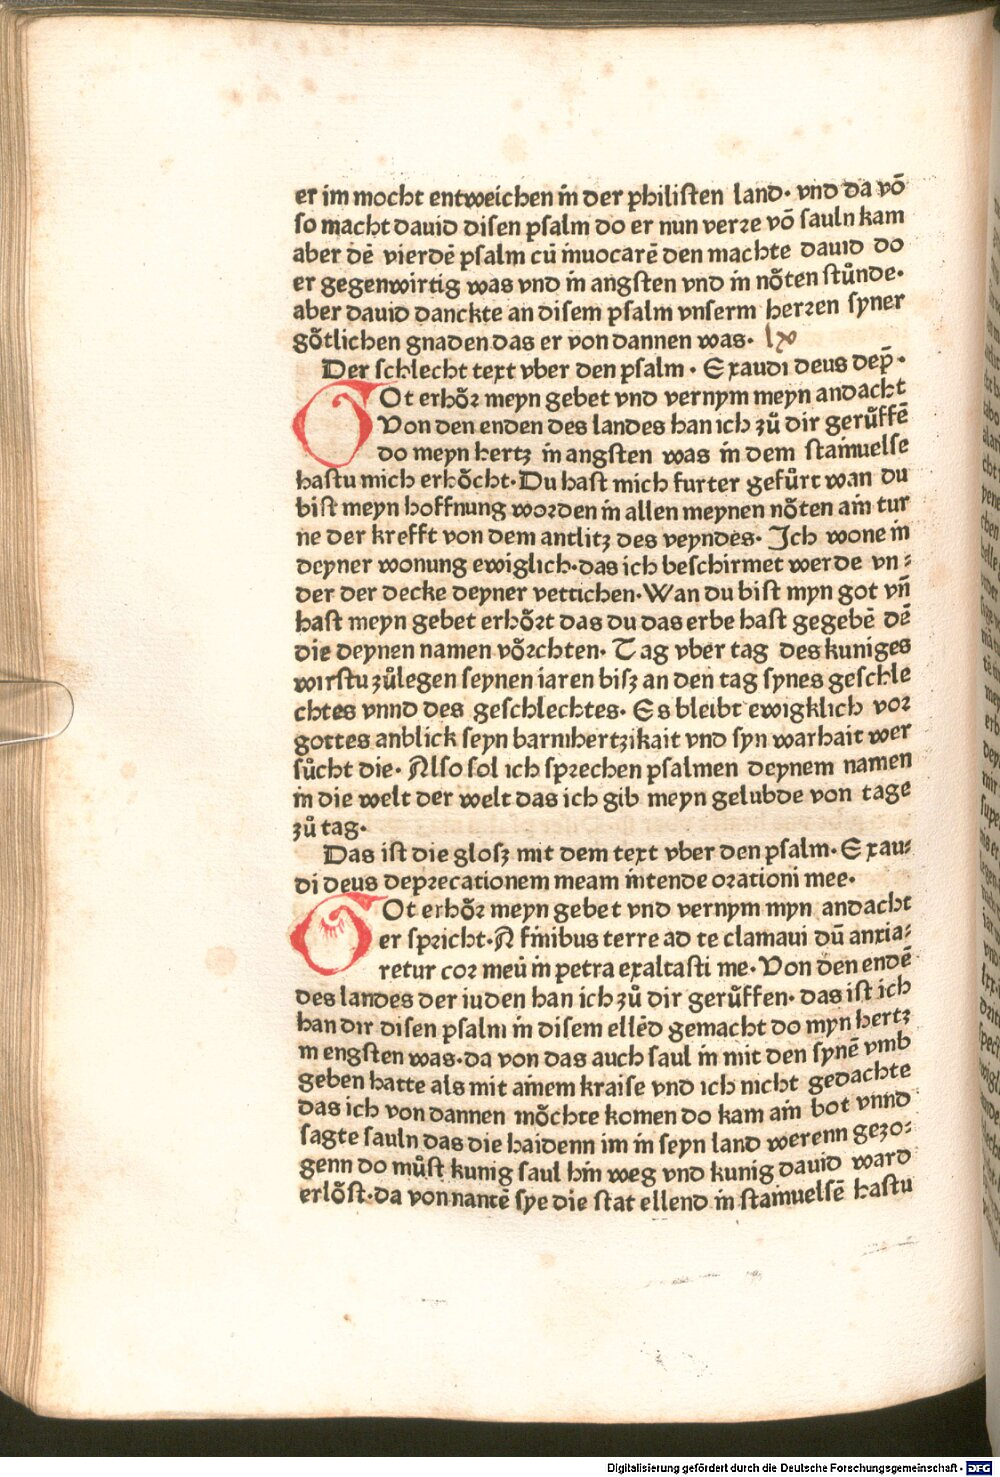 er im mocht entweichen in der philisten land· vnd da vō
so macht dauid disen psalm do er nun verꝛe vō sauln kam
aber dē vierdē psalm cū inuocarē den machte dauid do
er gegenwirtig was vnd in angsten vnd in nöten stůnde·
aber dauid danckte an disem psalm vnserm herꝛen syner
götlichen gnaden das er von dannen was· lx
Der schlecht text vber den psalm · Exaudi deus dep̄·
Ot erhöꝛ meyn gebet vnd vernym meyn andacht
Von den enden des landes han ich zů dir gerůffē
do meyn hertz in angsten was in dem stainuelse
hastu mich erhöcht·Du hast mich furter gefůrt wan du
bist meyn hoffnung woꝛden in allen meynen nöten ain tur
ne der krefft von dem antlitz des veyndes· Ich wone in
deyner wonung ewiglich·das ich beschirmet werde vn⸗
der der decke deyner vettichen·Wan du bist myn got vn̄
hast meyn gebet erhöꝛt das du das erbe hast gegebē dē
die deynen namen vöꝛchten· Tag vber tag des kuniges
wirstu zůlegen seynen iaren bisz an den tag synes geschle
chtes vnnd des geschlechtes· Es bleibt ewigklich voꝛ
gottes anblick seyn barmhertzikait vnd syn warhait wer
sůcht die· Also sol ich spꝛechen psalmen deynem namen
in die welt der welt das ich gib meyn gelubde von tage
zů tag·
Das ist die glosz mit dem text vber den psalm· Exau⸗
di deus depꝛecationem meam intende oꝛationi mee·
Ot erhöꝛ meyn gebet vnd vernym myn andacht
er spꝛicht·A finibus terre ad te clamaui dū anxia⸗
retur coꝛ meū in petra exaltasti me· Von den endē
des landes der iuden han ich zů dir gerůffen· das ist ich
han dir disen psalm in disem ellēd gemacht do myn hertz
in engsten was·da von das auch saul in mit den synē vmb
geben hatte als mit ainem kraise vnd ich nicht gedachte
das ich von dannen möchte komen do kam ain bot vnnd
sagte sauln das die haidenn im in seyn land werenn gezo⸗
genn do můst kunig saul hin weg vnd kunig dauid ward
erlöst·da von nantē sye die stat ellend in stainuelsē hastu
Digitalisierung gefördert durch die Deutsche Forschungsgemeinschaft - DFG